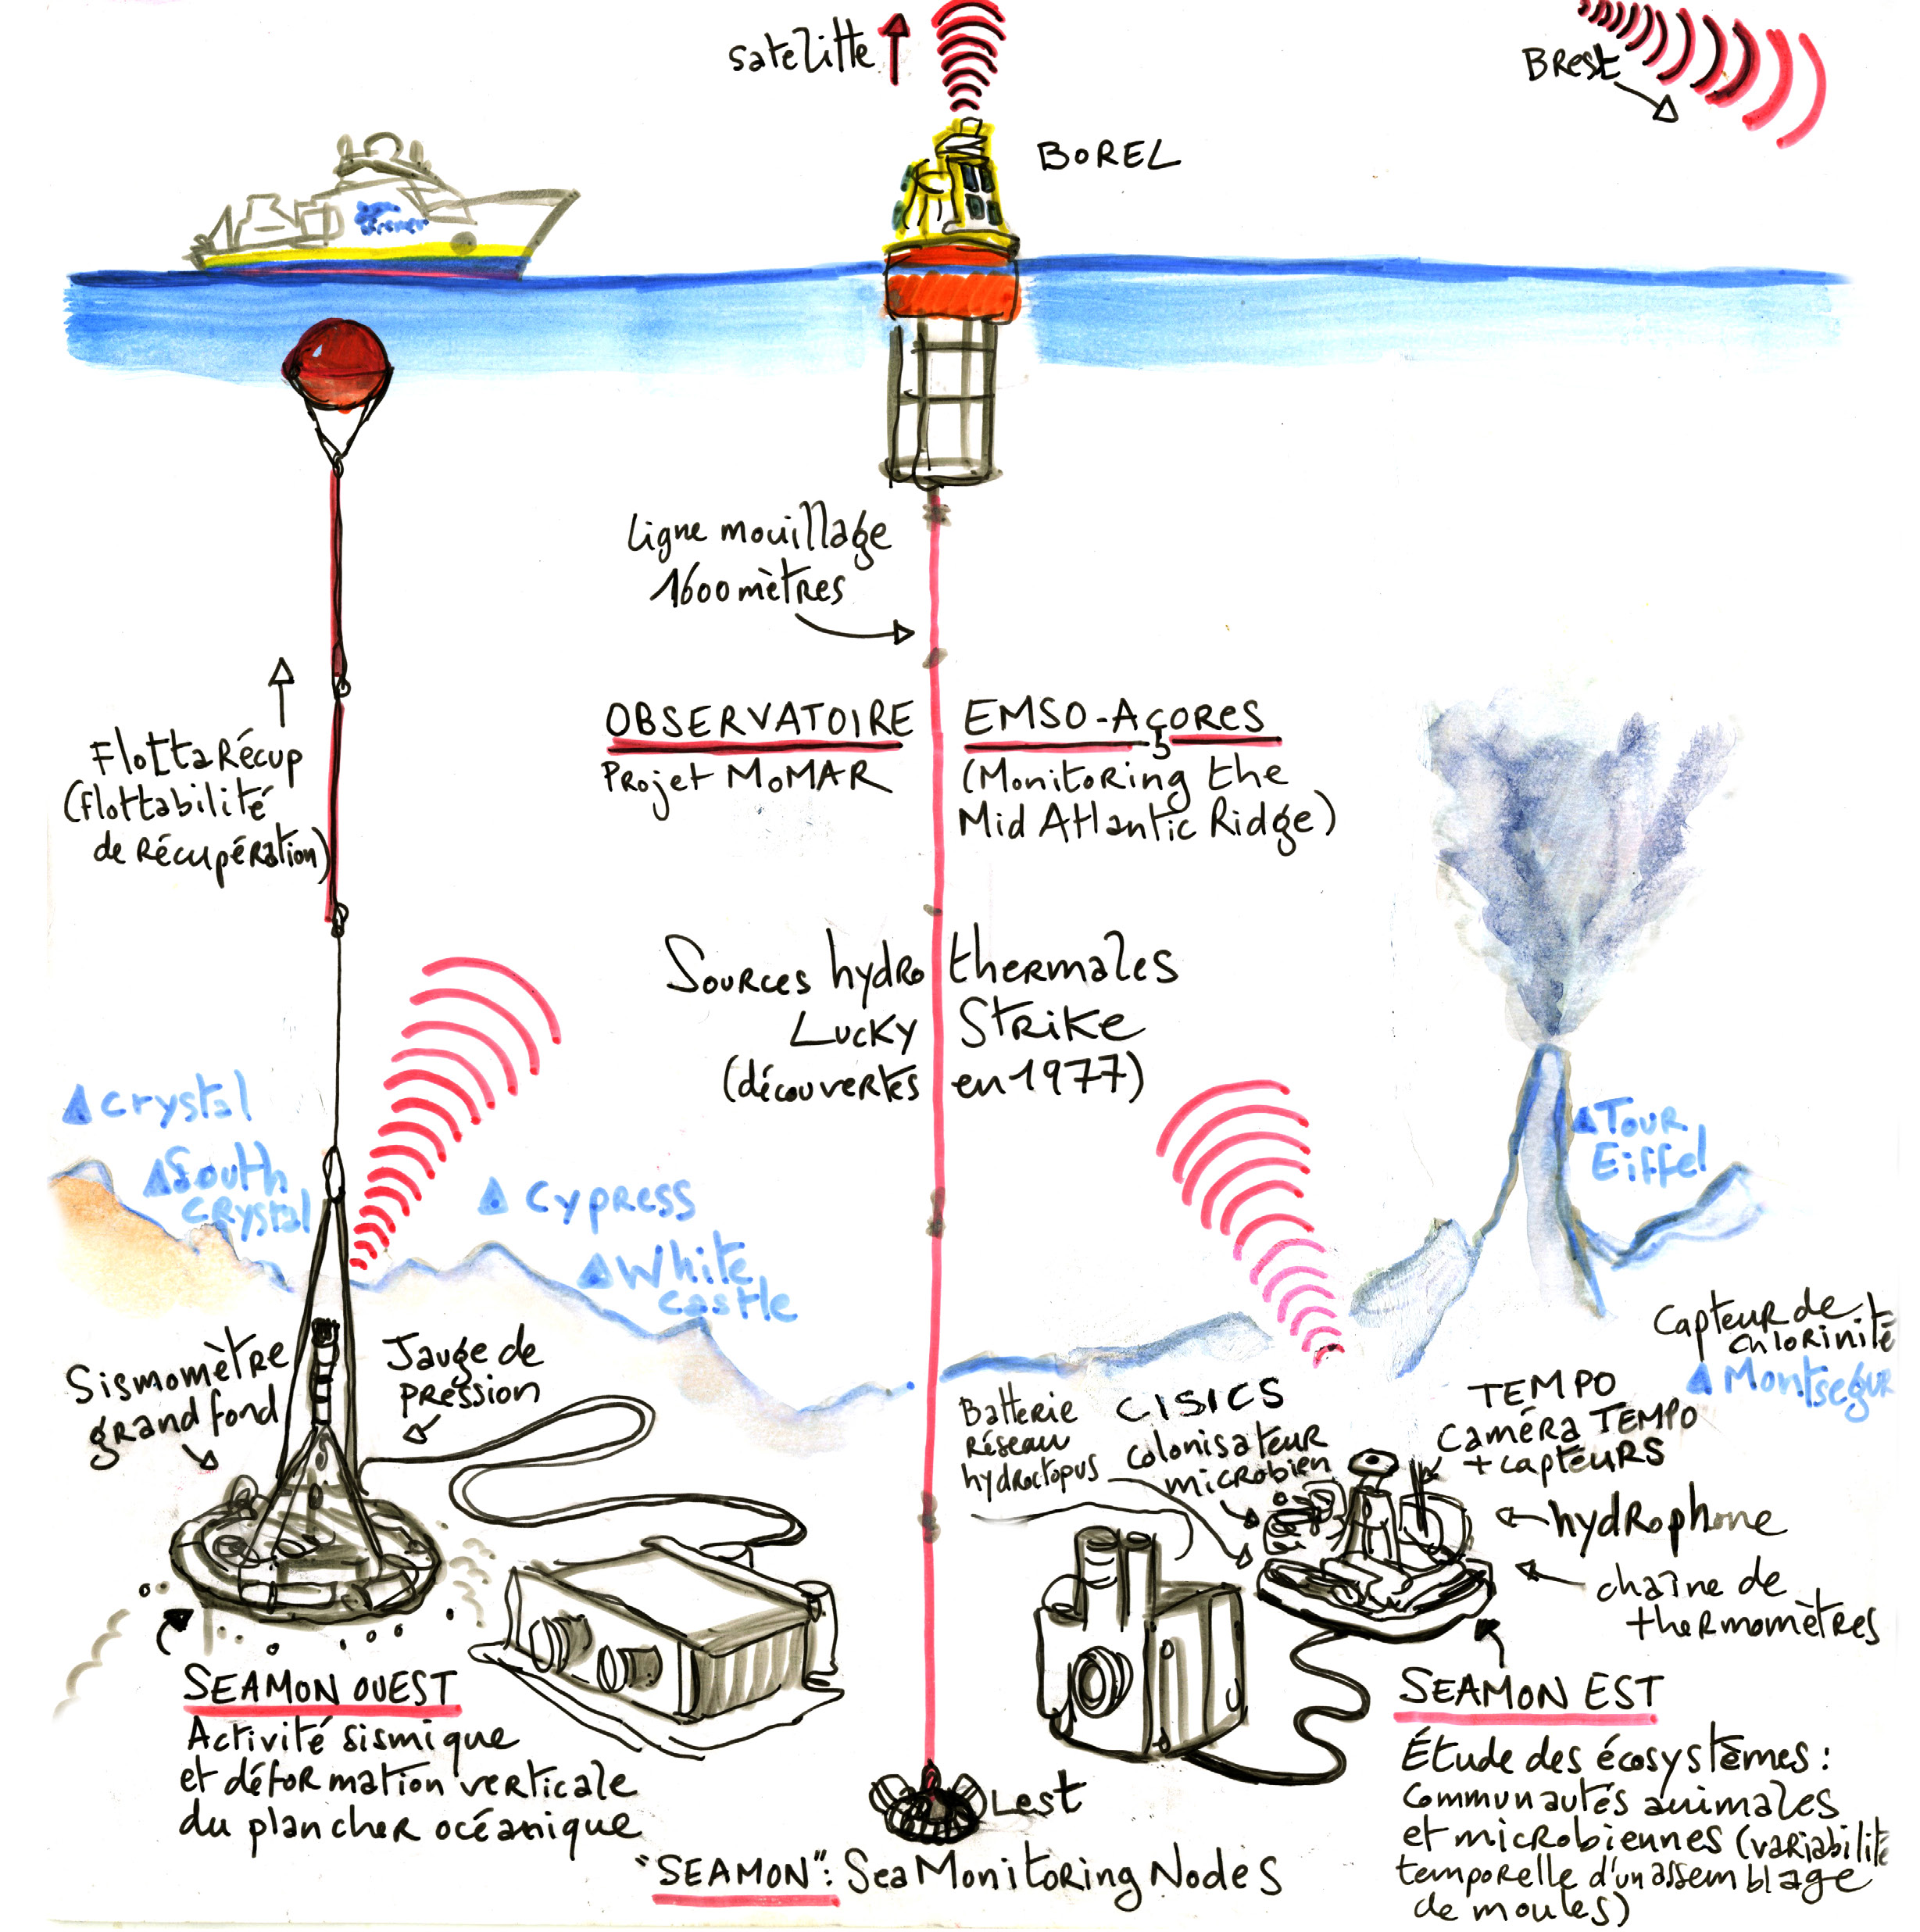 satelitte
Brest
BOREL
Ifremer
Ligne mouillage
1600 mètres
FlottaRécup
(Flottabilité
de Récupération)
OBSERVATOIRE EMSO-AçORES
Projet MoMAR (Monitoring the
Mid Atlantic Ridge)
Sources hydrothermales
Lucky Strike
(découvertes en 1977)
Crystal
South
Crystal
Cypress
White
castle
Tour
Eiffel
Capteur de
chlorinité
Montségur
Sismomètre
grand fond
Jauge de
pression
Batterie
réseau
hydroctopus
CISICS
colonisateur
microbien
TEMPO
Caméra TEMPO
+ capteurs
hydrophone
chaîne de
thermomètres
SEAMON OUEST
Activité sismique
et déformation verticale
du plancher océanique
Lest
SEAMON EST
Étude des écosystèmes :
Communautés animales
et microbiennes (variabilité
temporelle d'un assemblage
de moules)
"SEAMON" : Sea Monitoring Nodes